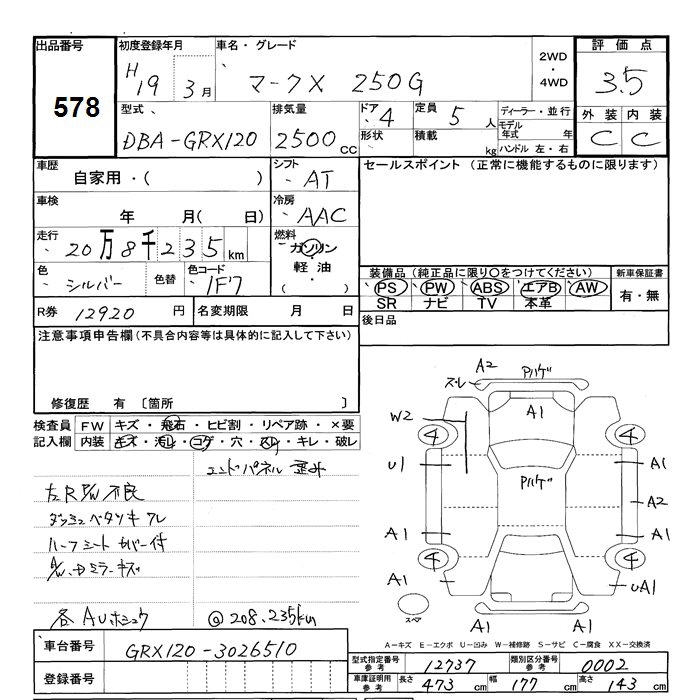 出品番号 初度登録年月 車名・グレード 2WD・4WD 評価点
578 H19 3月 マークX 250G 3.5
型式 排気量 ドア 4 定員 5人 ディーラー・並行 外装 内装
DBA-GRX120 2500cc 形状 積載 kg モデル年式 年 C C
ハンドル 左・右
車歴 シフト セールスポイント (正常に機能するものに限ります)
自家用・( ) AT
車検 冷房
年 月( 日) AAC
走行 燃料
20万8千235km ガソリン
軽油
・( )
色 色替 色コード 装備品 (純正品に限り○をつけてください) 新車保証書
シルバー 1F7 PS PW ABS エアB AW 有・無
SR ナビ TV 本革
R券 12920円 名変期限 月 日 後日品
注意事項申告欄 (不具合内容等は具体的に記入して下さい)
修復歴 有 〔箇所 〕
検査員 FW キズ・飛石・ヒビ割・リペア跡・×要
記入欄 内装 キズ・汚レ・コゲ・穴・スレ・キレ・破レ
エンドパネル 歪み
左R P/W 不良
ダッシュ ベタツキ ワレ
ハーフシートカバー付
ミラーキズ
各 AUホシュウ @208.235km
スレ A2 Pハゲ
A1
W2
4 4
U1 Pハゲ A1
A2
A1 A1
4 4
A1 UA1
スペア A1 A1
A-キズ E-エクボ U-凹み W-補修跡 S-サビ C-腐食 XX-交換済
車台番号 GRX120-3026510
登録番号
型式指定番号 参考 12737 類別区分番号 参考 0002
車庫証明用 参考 長さ 473cm 幅 177cm 高さ 143cm